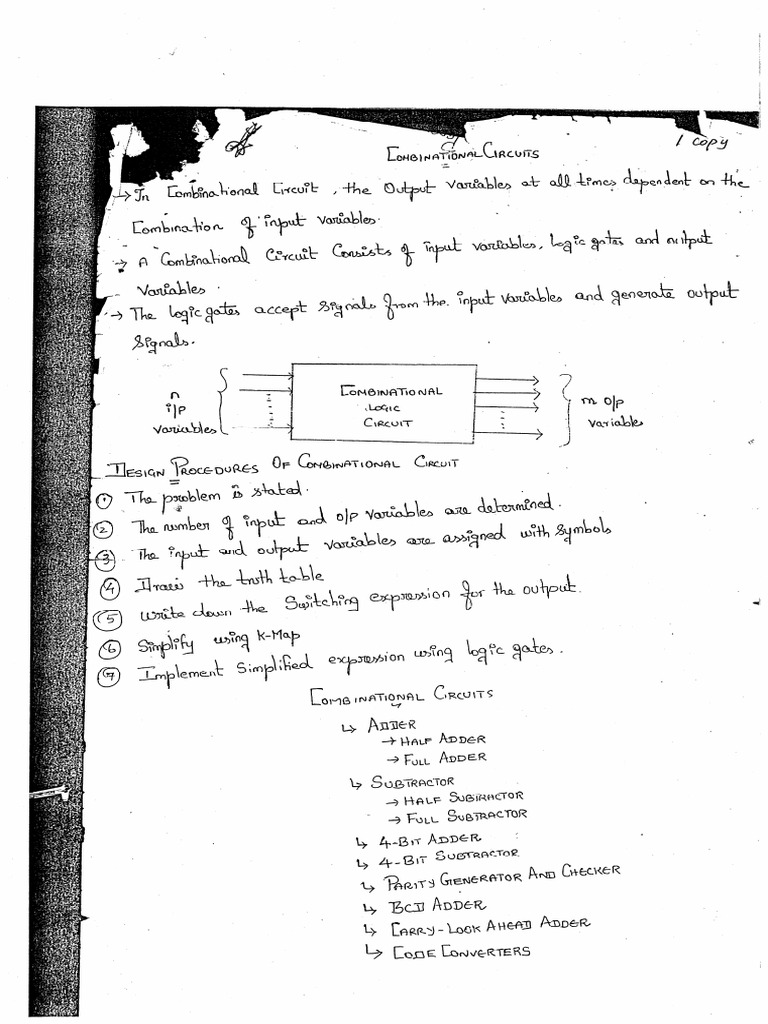 1 copy
COMBINATIONAL CIRCUITS
→ In Combinational Circuit, the Output variables at all times dependent on the
Combination of input variables.
→ A Combinational Circuit Consists of input variables, logic gates and output
variables.
→ The logic gates accept signals from the input variables and generate output
signals.
n
i/p
variables
COMBINATIONAL
LOGIC
CIRCUIT
m O/P
variables
DESIGN PROCEDURES OF COMBINATIONAL CIRCUIT
① The problem is stated.
② The number of input and o/p variables are determined.
③ The input and output variables are assigned with symbols
④ Draw the truth table
⑤ write down the Switching expression for the output.
⑥ Simplify using K-Map
⑦ Implement Simplified expression using logic gates.
COMBINATIONAL CIRCUITS
↳ ADDER
→ HALF ADDER
→ FULL ADDER
↳ SUBTRACTOR
→ HALF SUBTRACTOR
→ FULL SUBTRACTOR
↳ 4-BIT ADDER
↳ 4-BIT SUBTRACTOR
↳ PARITY GENERATOR AND CHECKER
↳ BCD ADDER
↳ CARRY-LOOK AHEAD ADDER
↳ CODE CONVERTERS